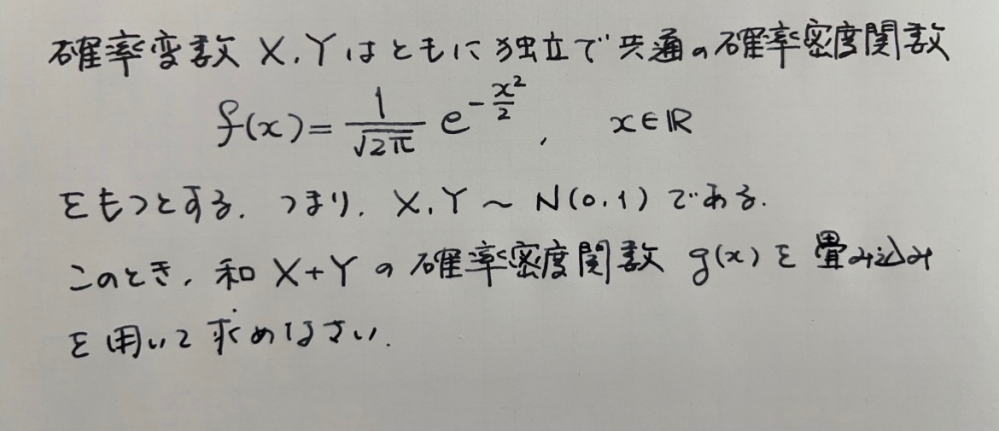 確率変数 X, Y はともに独立で共通の確率密度関数
f(x) = \frac{1}{\sqrt{2π}} e^{-\frac{x^2}{2}}, x ∈ ℝ
をもつとする. つまり, X, Y ~ N(0, 1) である.
このとき, 和 X+Y の確率密度関数 g(x) を畳み込み
を用いて求めなさい.